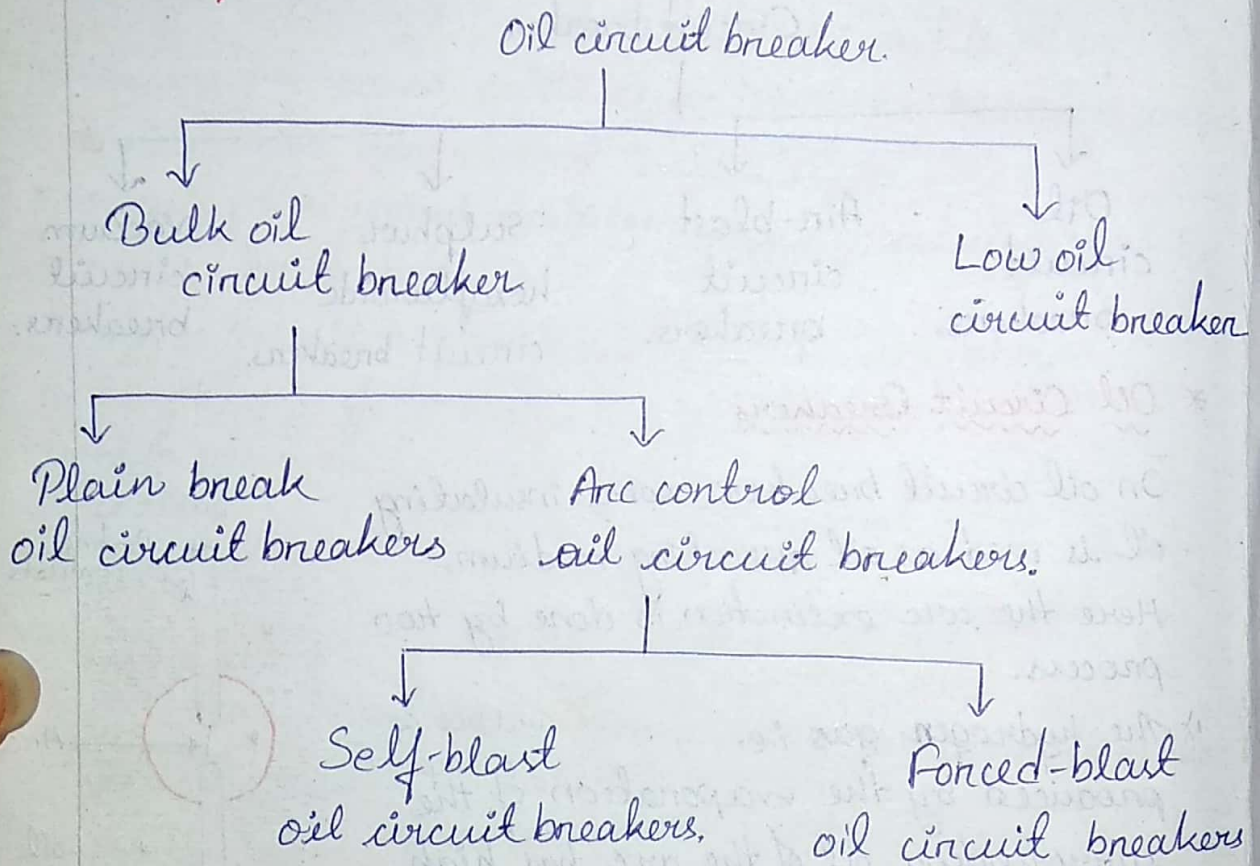 Oil circuit breaker.
Bulk oil
circuit breaker
Low oil
circuit breaker
Plain break
oil circuit breakers
Arc control
oil circuit breakers.
Self-blast
oil circuit breakers.
Forced-blast
oil circuit breakers